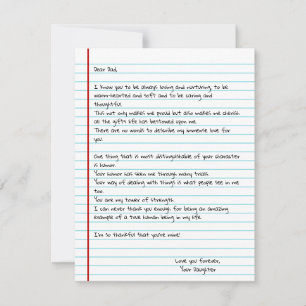 Dear Dad,
I know you to be always loving and nurturing, to be
warm-hearted and soft and to be caring and
thoughtful.
This not only makes me proud but also makes me cherish
all the gifts life has bestowed upon me.
There are no words to describe my immense love for
you.
One thing that is most distinguishable of your character
is honor.
Your honor has seen me through many trials.
Your way of dealing with things is what people see in me
too.
You are my tower of strength.
I can never thank you enough for being an amazing
example of a true human being in my life.
I'm so thankful that you're mine!
Love you forever,
Your Daughter